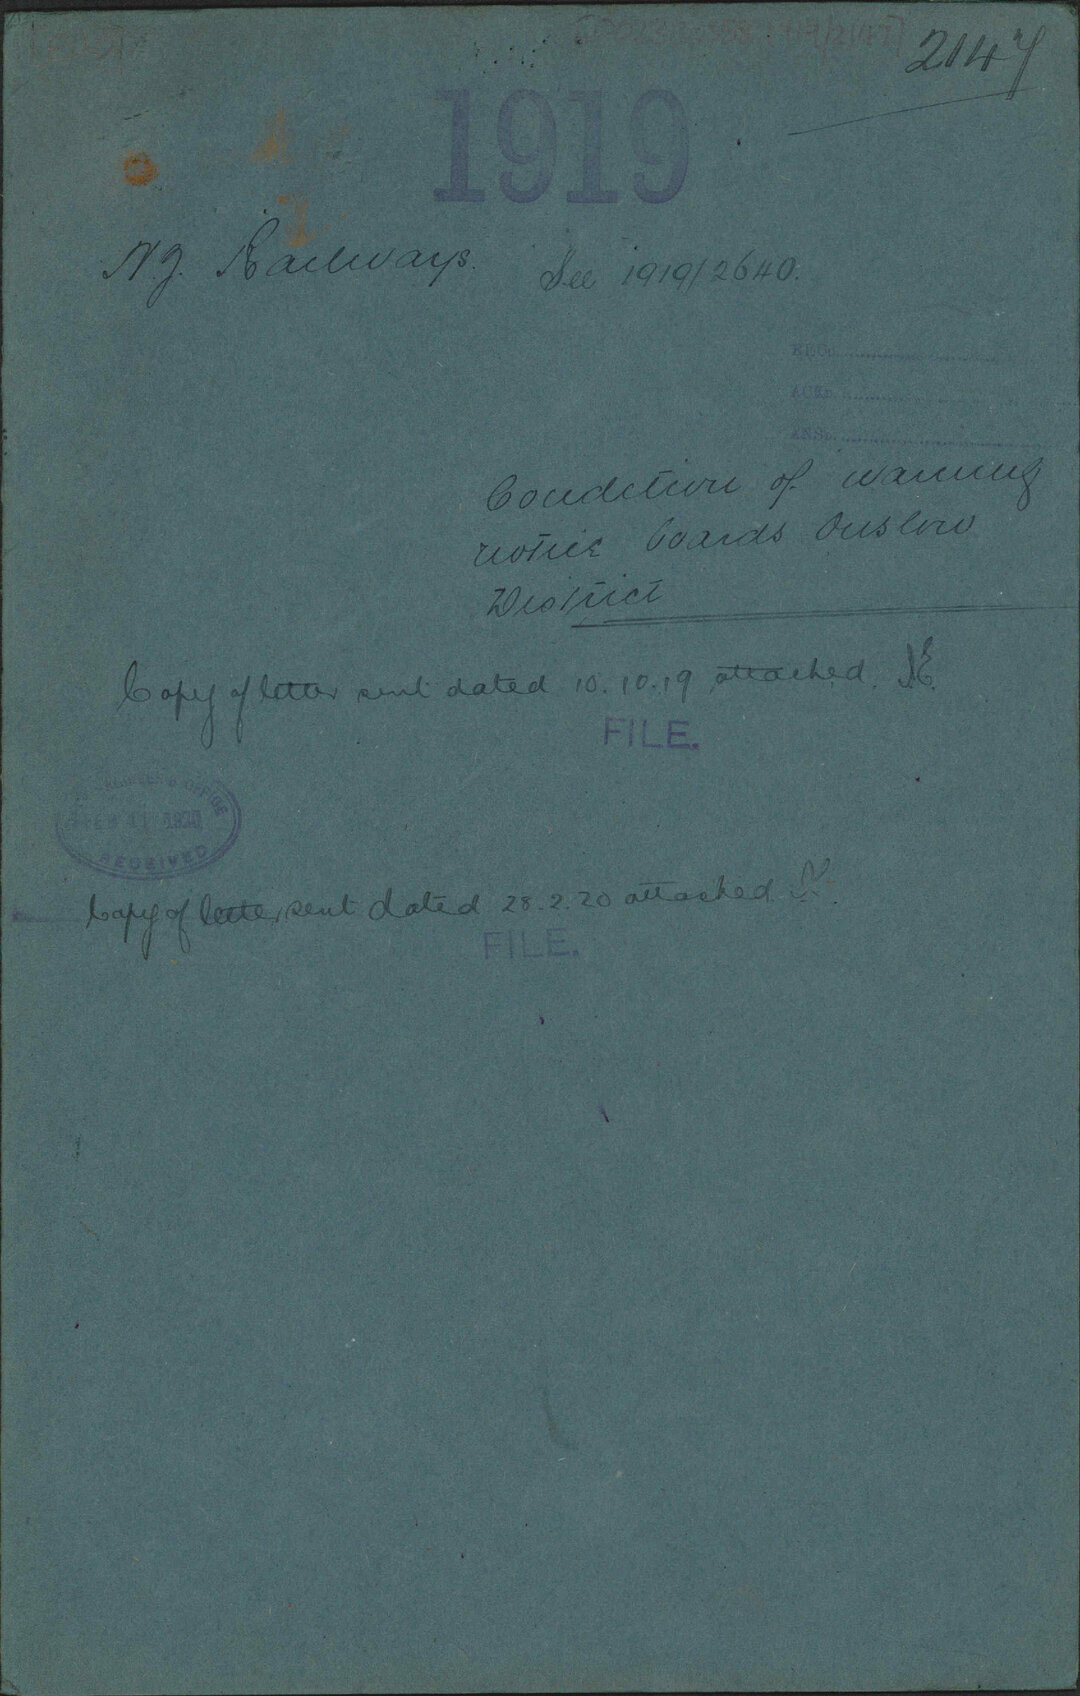 2147
1919
N.Z. Railways. See 1919/2640.
RECD.
ACKD.
ANSD.
Condition of warning
notice boards Onslow
District
Copy of letter sent dated 10.10.19 attached.
FILE.
OFFICE
11 1920
RECEIVED
Copy of letter sent dated 28.2.20 attached
FILE.